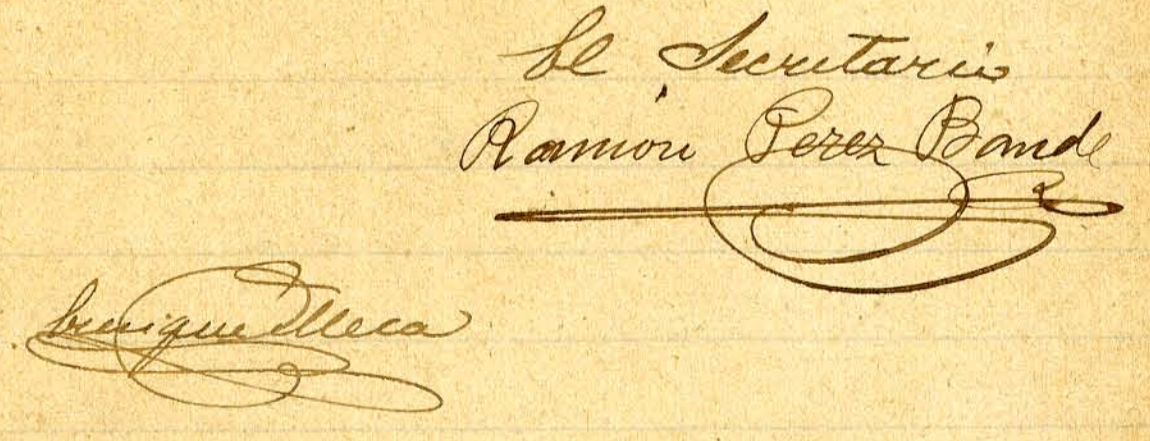 El Secretario
Ramón Perez Bande
Enrique Meca